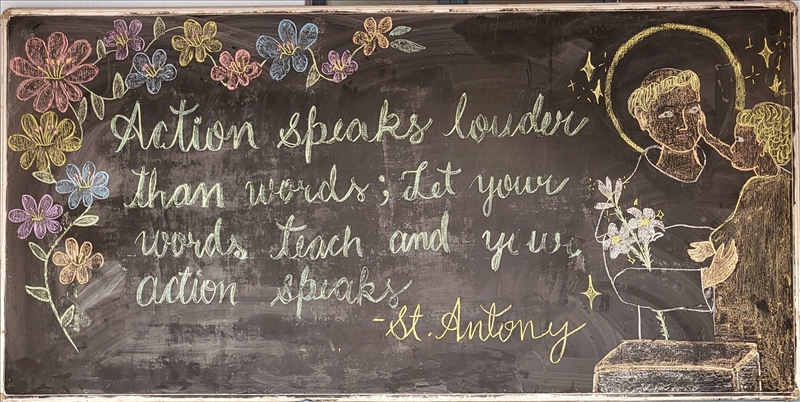 Action speaks louder
than words; Let your
words teach and your
action speaks
-St. Antony